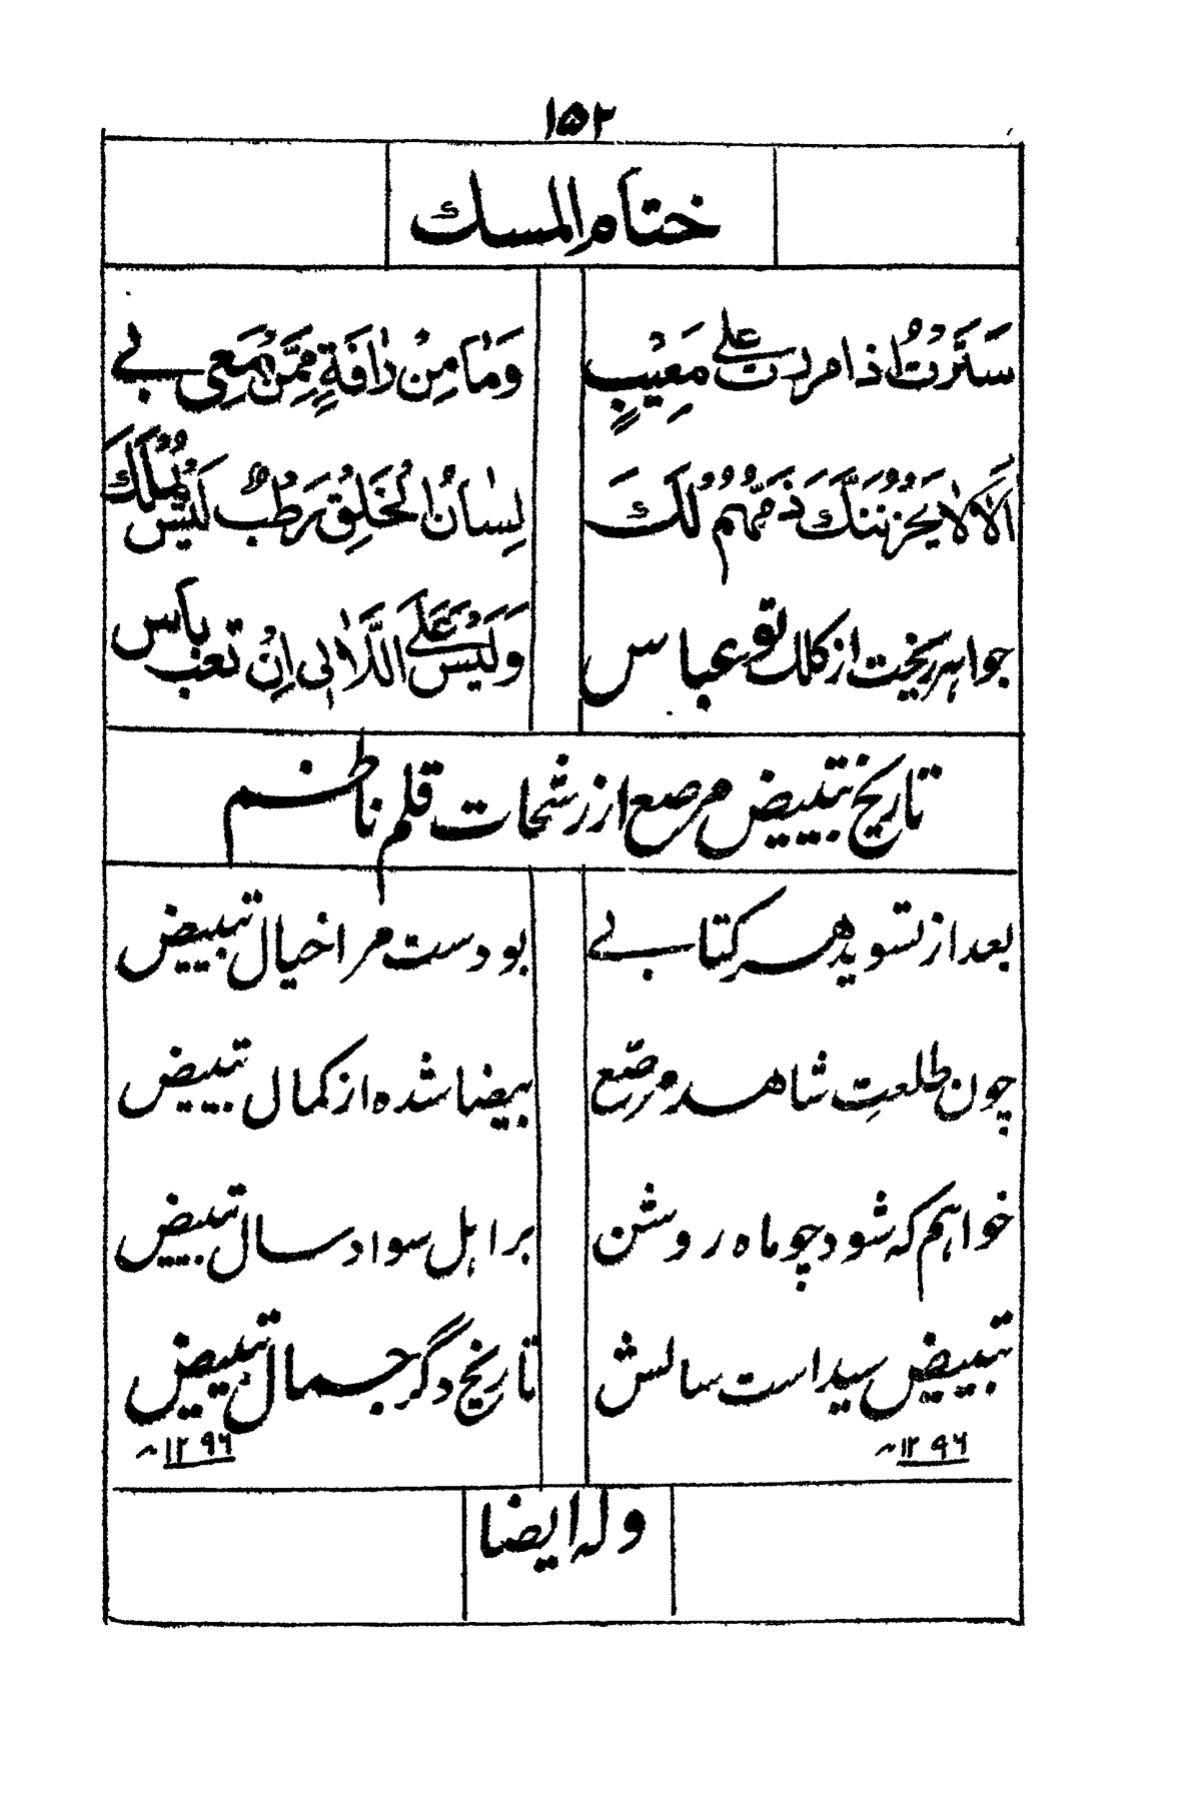 ۱۵۲
ختام المسك
سَتَرْتُ اذا مررت على مَعِيبٍ وَمَا مِنْ رَافَةٍ مِمَّنْ
اَلَا لَا يَحْزُنَنَّكَ ذَمُّهُمْ لَكَ لِسَانُ الْخَلِقِ رَطْبٌ لَيْسَ يُمْلَكَ
جواهر ریخت از کلک تو عباس وَلَيْسَ عَلَى اللَّاٰلِي اِنْ تعب باس
تاریخ تبییض مرصع از رشحات قلم ناظم
بعد از تسوید هر کتابے بودست مرا خیال تبییض
چون طلعتِ شاهد مرصّع بیضا شده از کمال تبییض
خواهم که شود چو ماه روشن بر اهل سواد سال تبییض
تبییض سید است سالش تاریخ دگر جمال تبییض
۱۲۹۶ ۱۲۹۶
وله ایضا